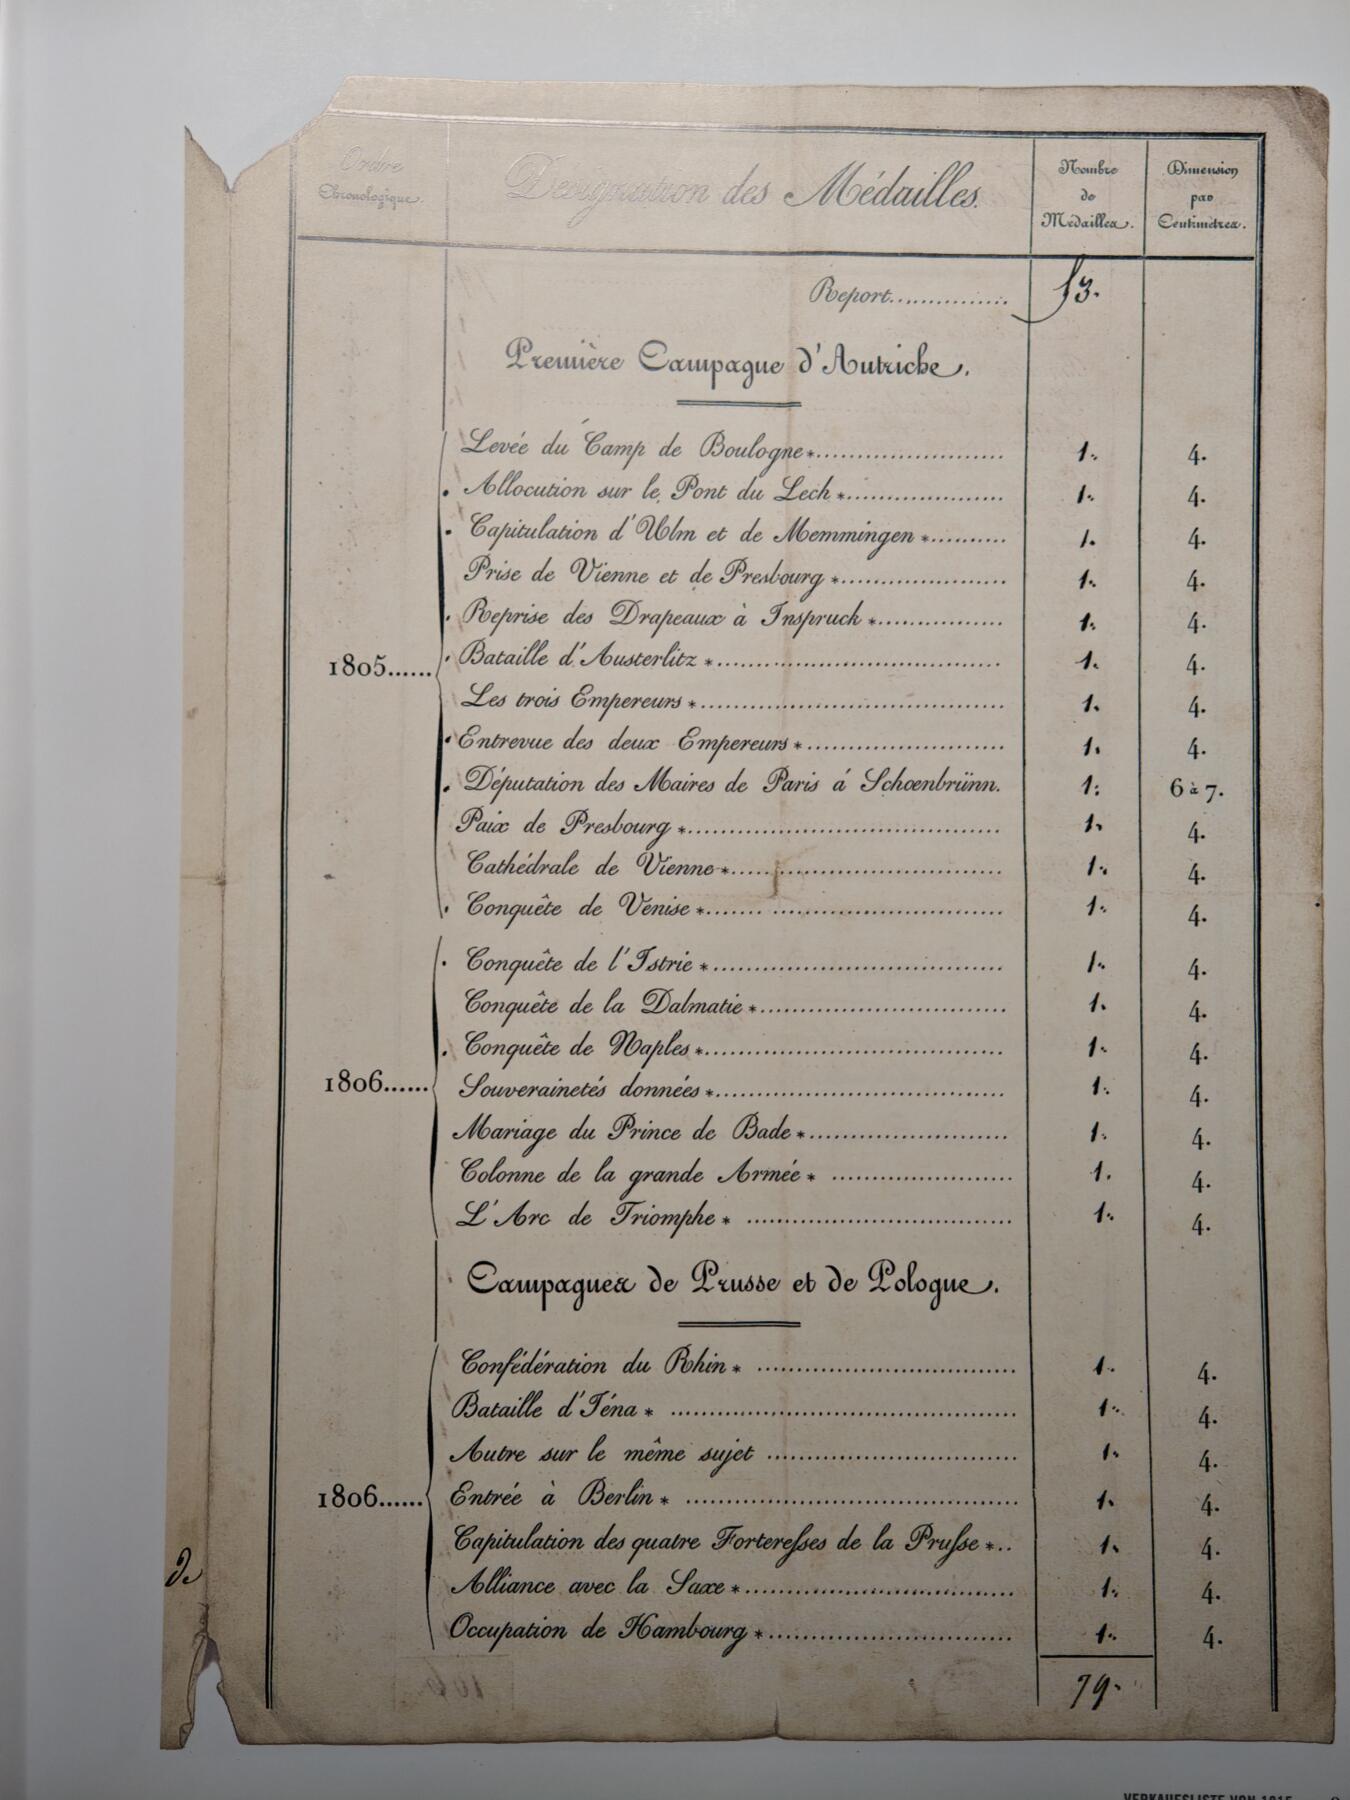 Ordre
Chronologique.
Désignation des Médailles.
Nombre
de
Médailles.
Dimension
par
Centimètres.
Report............... 53.
Première Campagne d'Autriche.
Levée du Camp de Boulogne*...................... 1. 4.
Allocution sur le Pont du Lech*.................. 1. 4.
Capitulation d'Ulm et de Memmingen*.......... 1. 4.
Prise de Vienne et de Presbourg*.................. 1. 4.
Reprise des Drapeaux à Inspruck*............... 1. 4.
1805...... Bataille d'Austerlitz*............................... 1. 4.
Les trois Empereurs*................................. 1. 4.
Entrevue des deux Empereurs*..................... 1. 4.
Députation des Maires de Paris á Schoenbrünn. 1. 6 à 7.
Paix de Presbourg*.................................. 1. 4.
Cathédrale de Vienne*............................... 1. 4.
Conquête de Venise*................................ 1. 4.
Conquête de l'Istrie*............................... 1. 4.
Conquête de la Dalmatie*.......................... 1. 4.
Conquête de Naples*................................ 1. 4.
1806...... Souverainetés données*............................... 1. 4.
Mariage du Prince de Bade*..................... 1. 4.
Colonne de la grande Armée* ..................... 1. 4.
L'Arc de Triomphe* ............................... 1. 4.
Campagnes de Prusse et de Pologne.
Confédération du Rhin* ............................ 1. 4.
Bataille d'Téna* ..................................... 1. 4.
Autre sur le même sujet .......................... 1. 4.
1806...... Entrée à Berlin* ................................... 1. 4.
Capitulation des quatre Forteresses de la Prusse*.. 1. 4.
Alliance avec la Saxe*............................ 1. 4.
Occupation de Hambourg*......................... 1. 4.
79.
VERKAUFSLISTE VON 1815